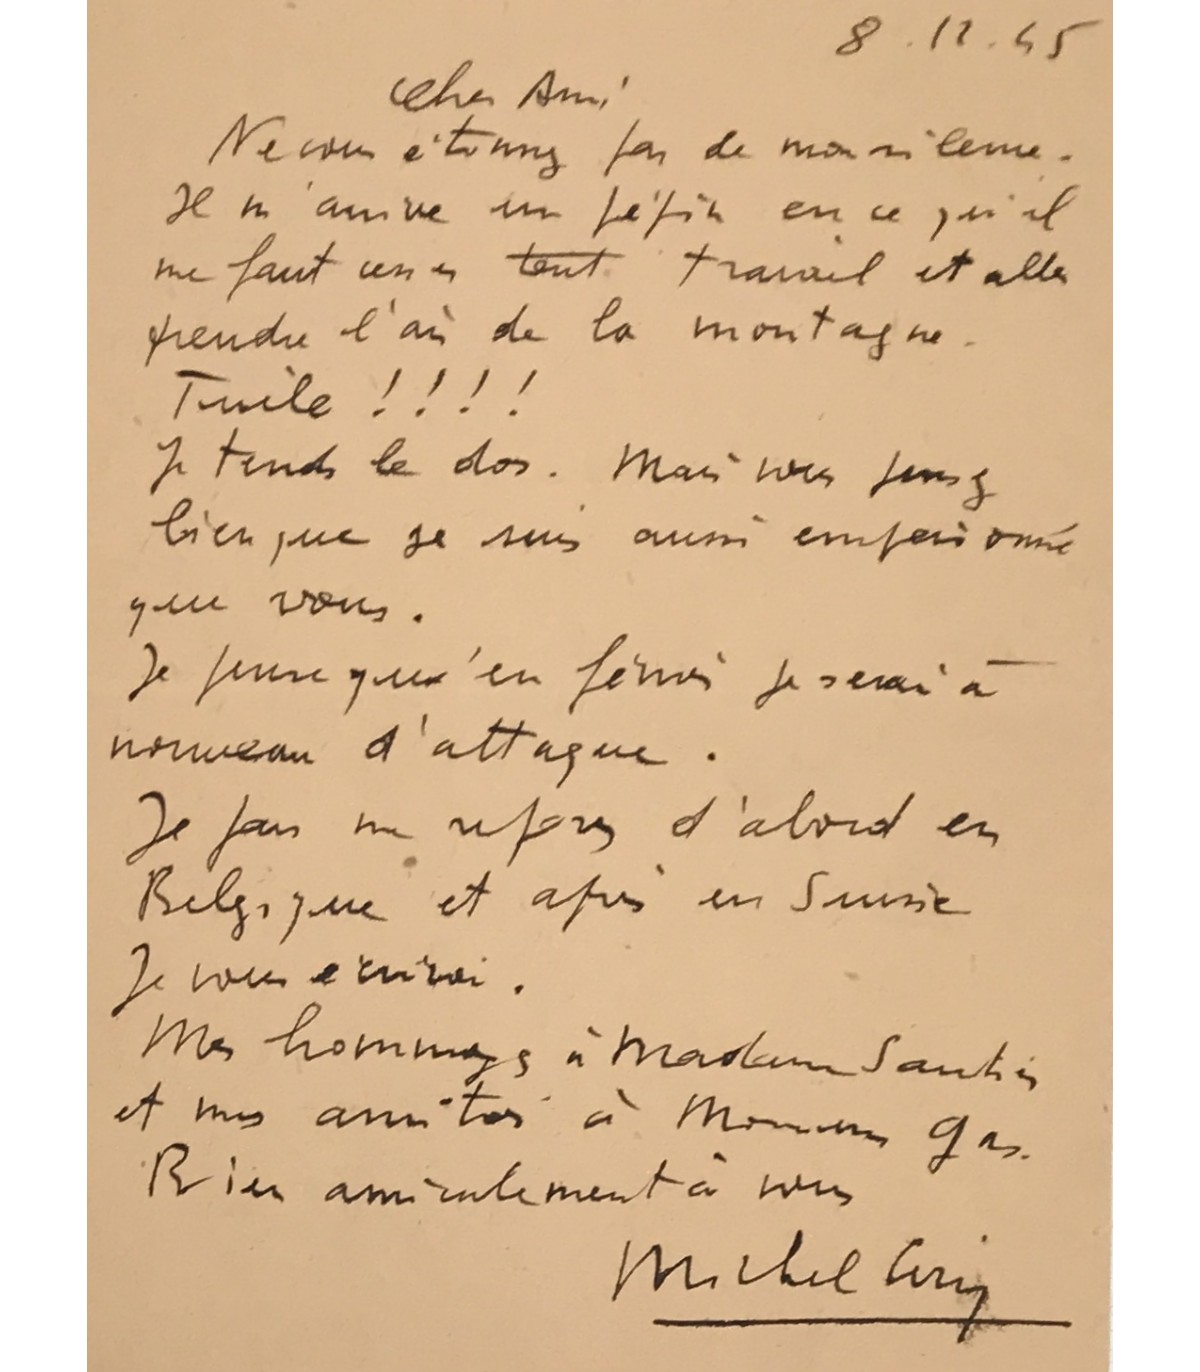 8.12.45
Cher Ami
Ne vous étonnez pas de mon silence.
Il m'arrive un pépin en ce qu'il
me faut cesser tout travail et aller
prendre l'air de la montagne.
Tuile !!!!
Je tends le dos. Mais vous pensez
bien que je suis aussi empoisonné
que vous.
Je pense qu'en février je serai à
nouveau d'attaque.
Je pars me reposer d'abord en
Belgique et après en Suisse
Je vous écrirai.
Mes hommages à Madame Sautier
et mes amitiés à Monsieur Gas.
Bien amicalement à vous
Michel Ciry